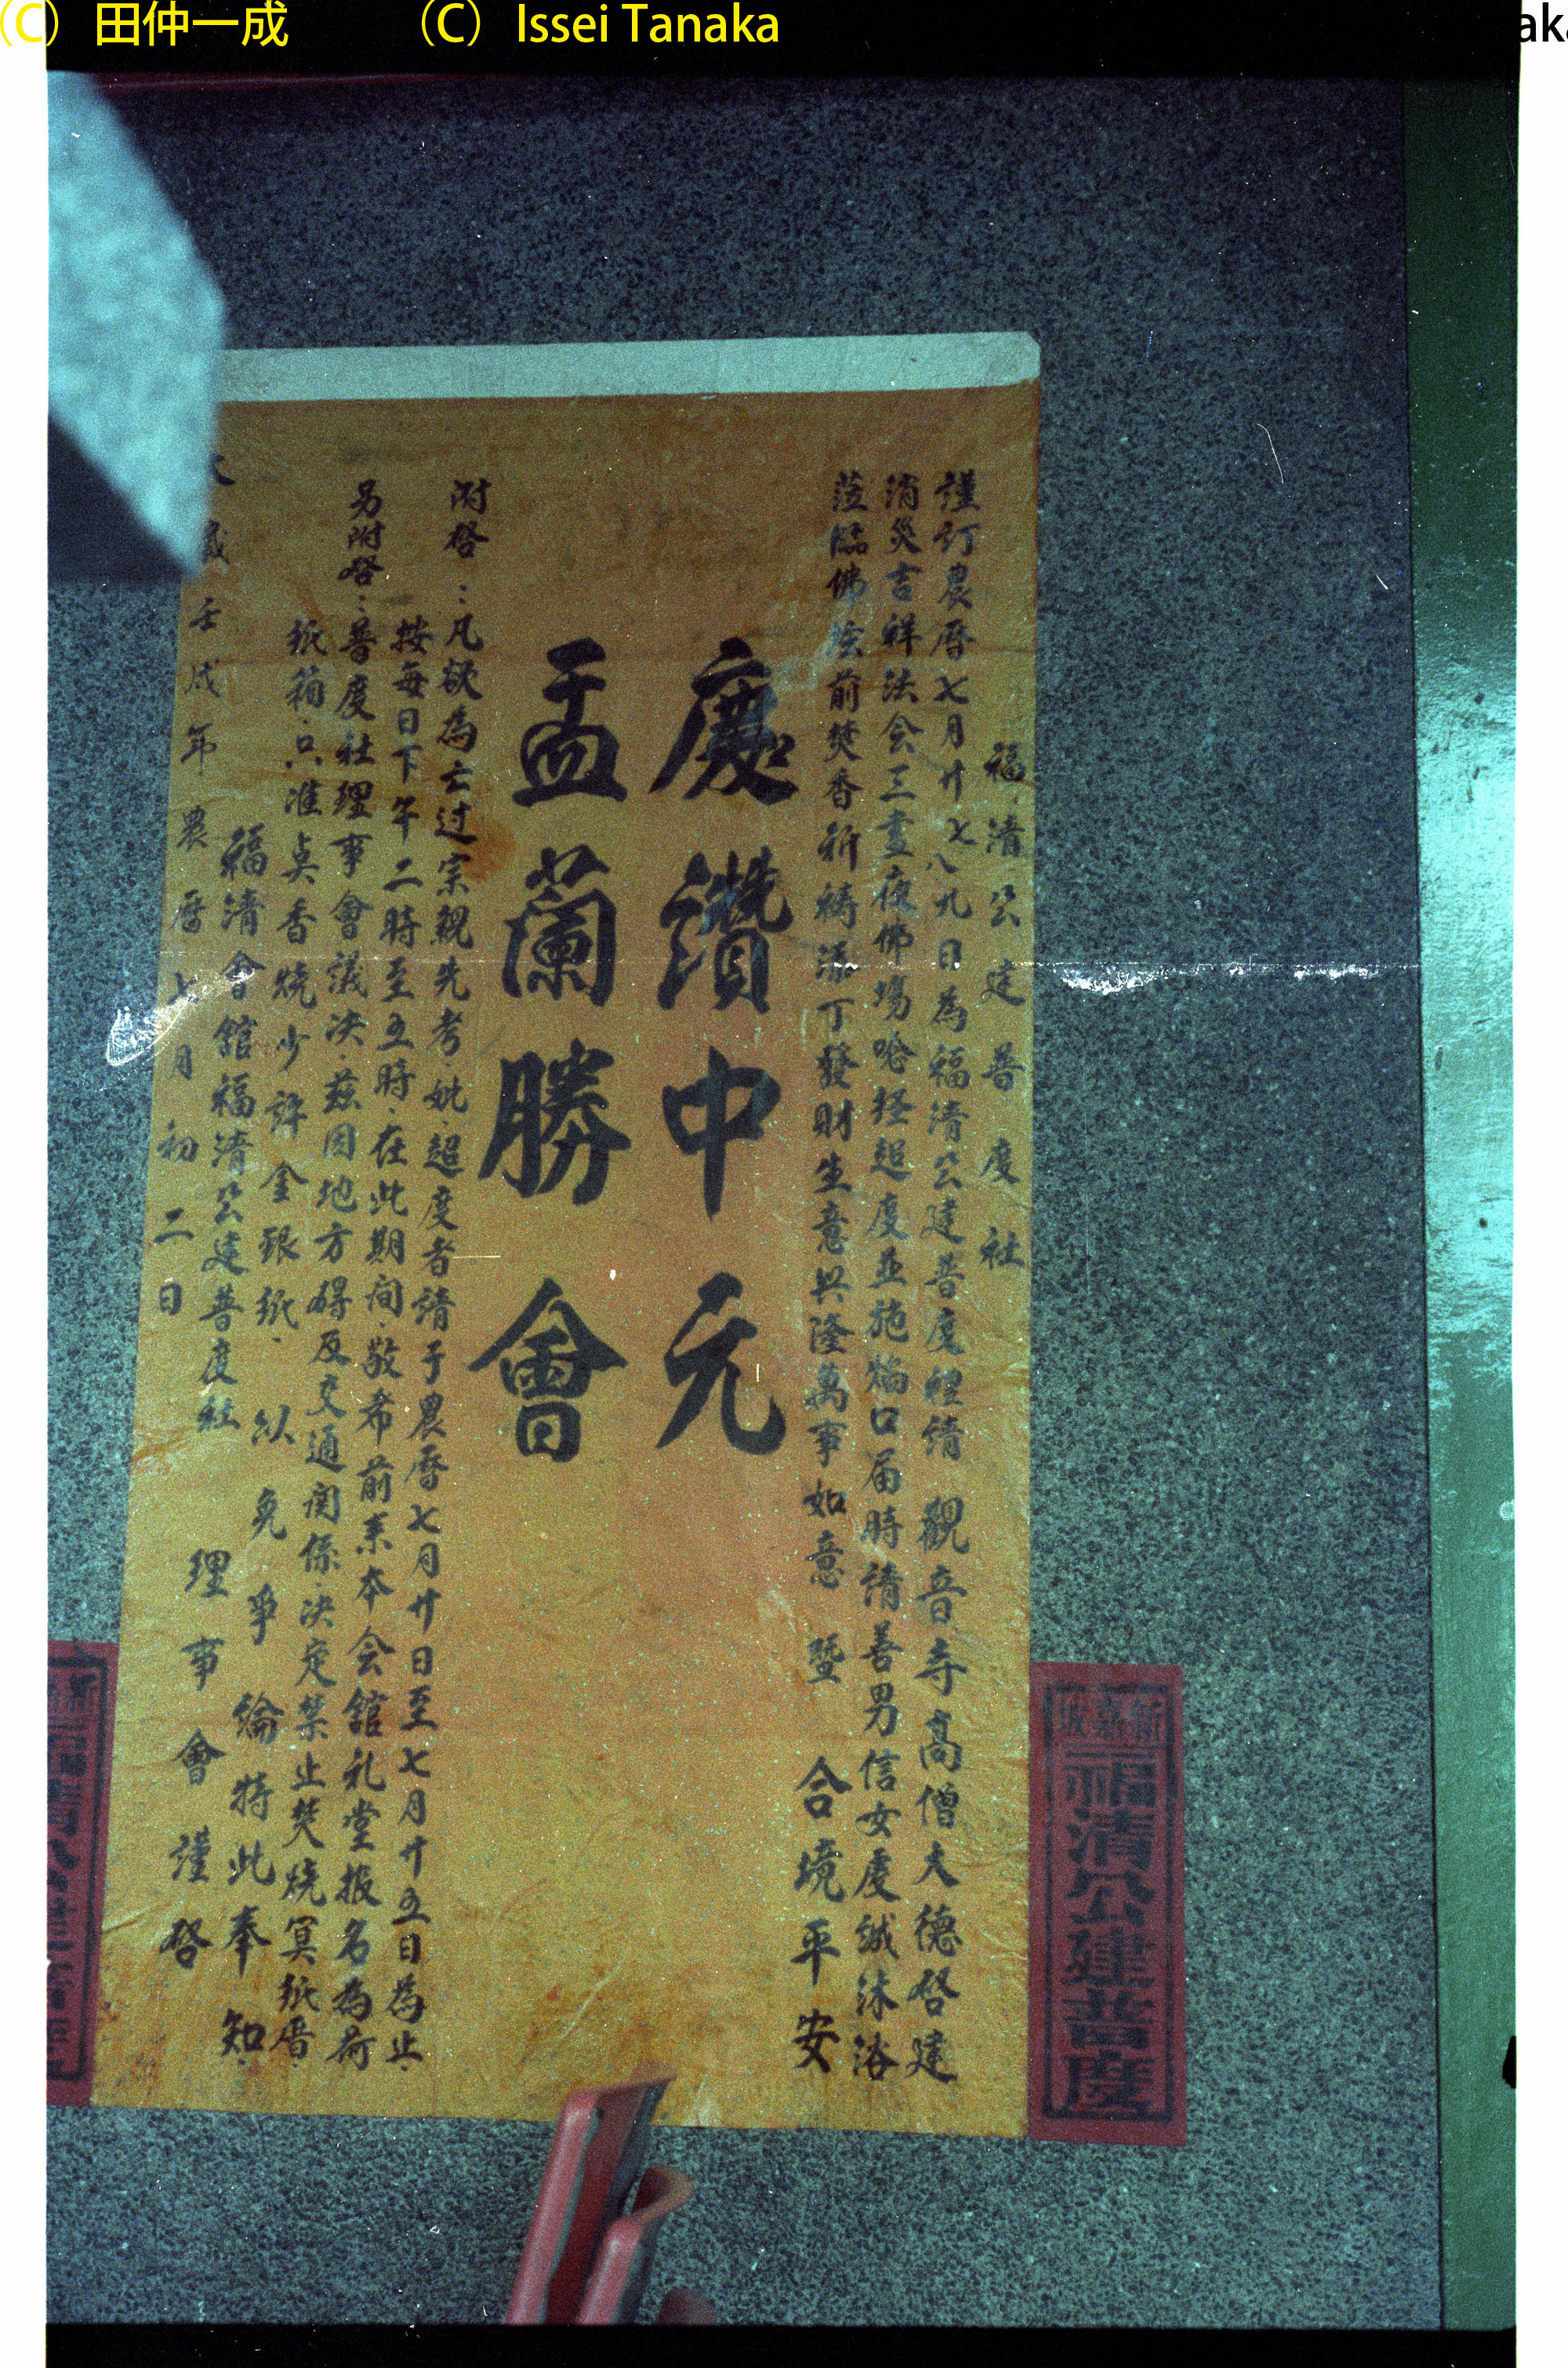 (C) 田仲一成
(C) Issei Tanaka
aka
福清公建普度社
謹訂農曆七月廿七八九日為福清公建普度禮請 觀音寺高僧大德啓建
消災吉祥法会三晝夜佛場唸経超度並施焰口届時請善男信女虔誠沐浴
蒞臨佛坛前焚香祈禱添丁發財生意兴隆萬事如意 暨 合境平安
慶讚中元
盂蘭勝會
附啓：凡欲為亡过宗親先考·妣·超度者請于農曆七月廿日至七月廿五日為止·
按每日下午二時至五時·在此期间·敬希前来本会舘礼堂报名為荷
另附啓：普度社理事會議决·兹因地方碍及交通関係·决定禁止焚燒冥紙厝·
紙箱·只准奌香燒少許金银紙·以免爭論特此奉知·
福清會舘福清公建普度社 理事會謹啓
歲壬戌年農曆七月初二日
新嘉坡
福清公建普度